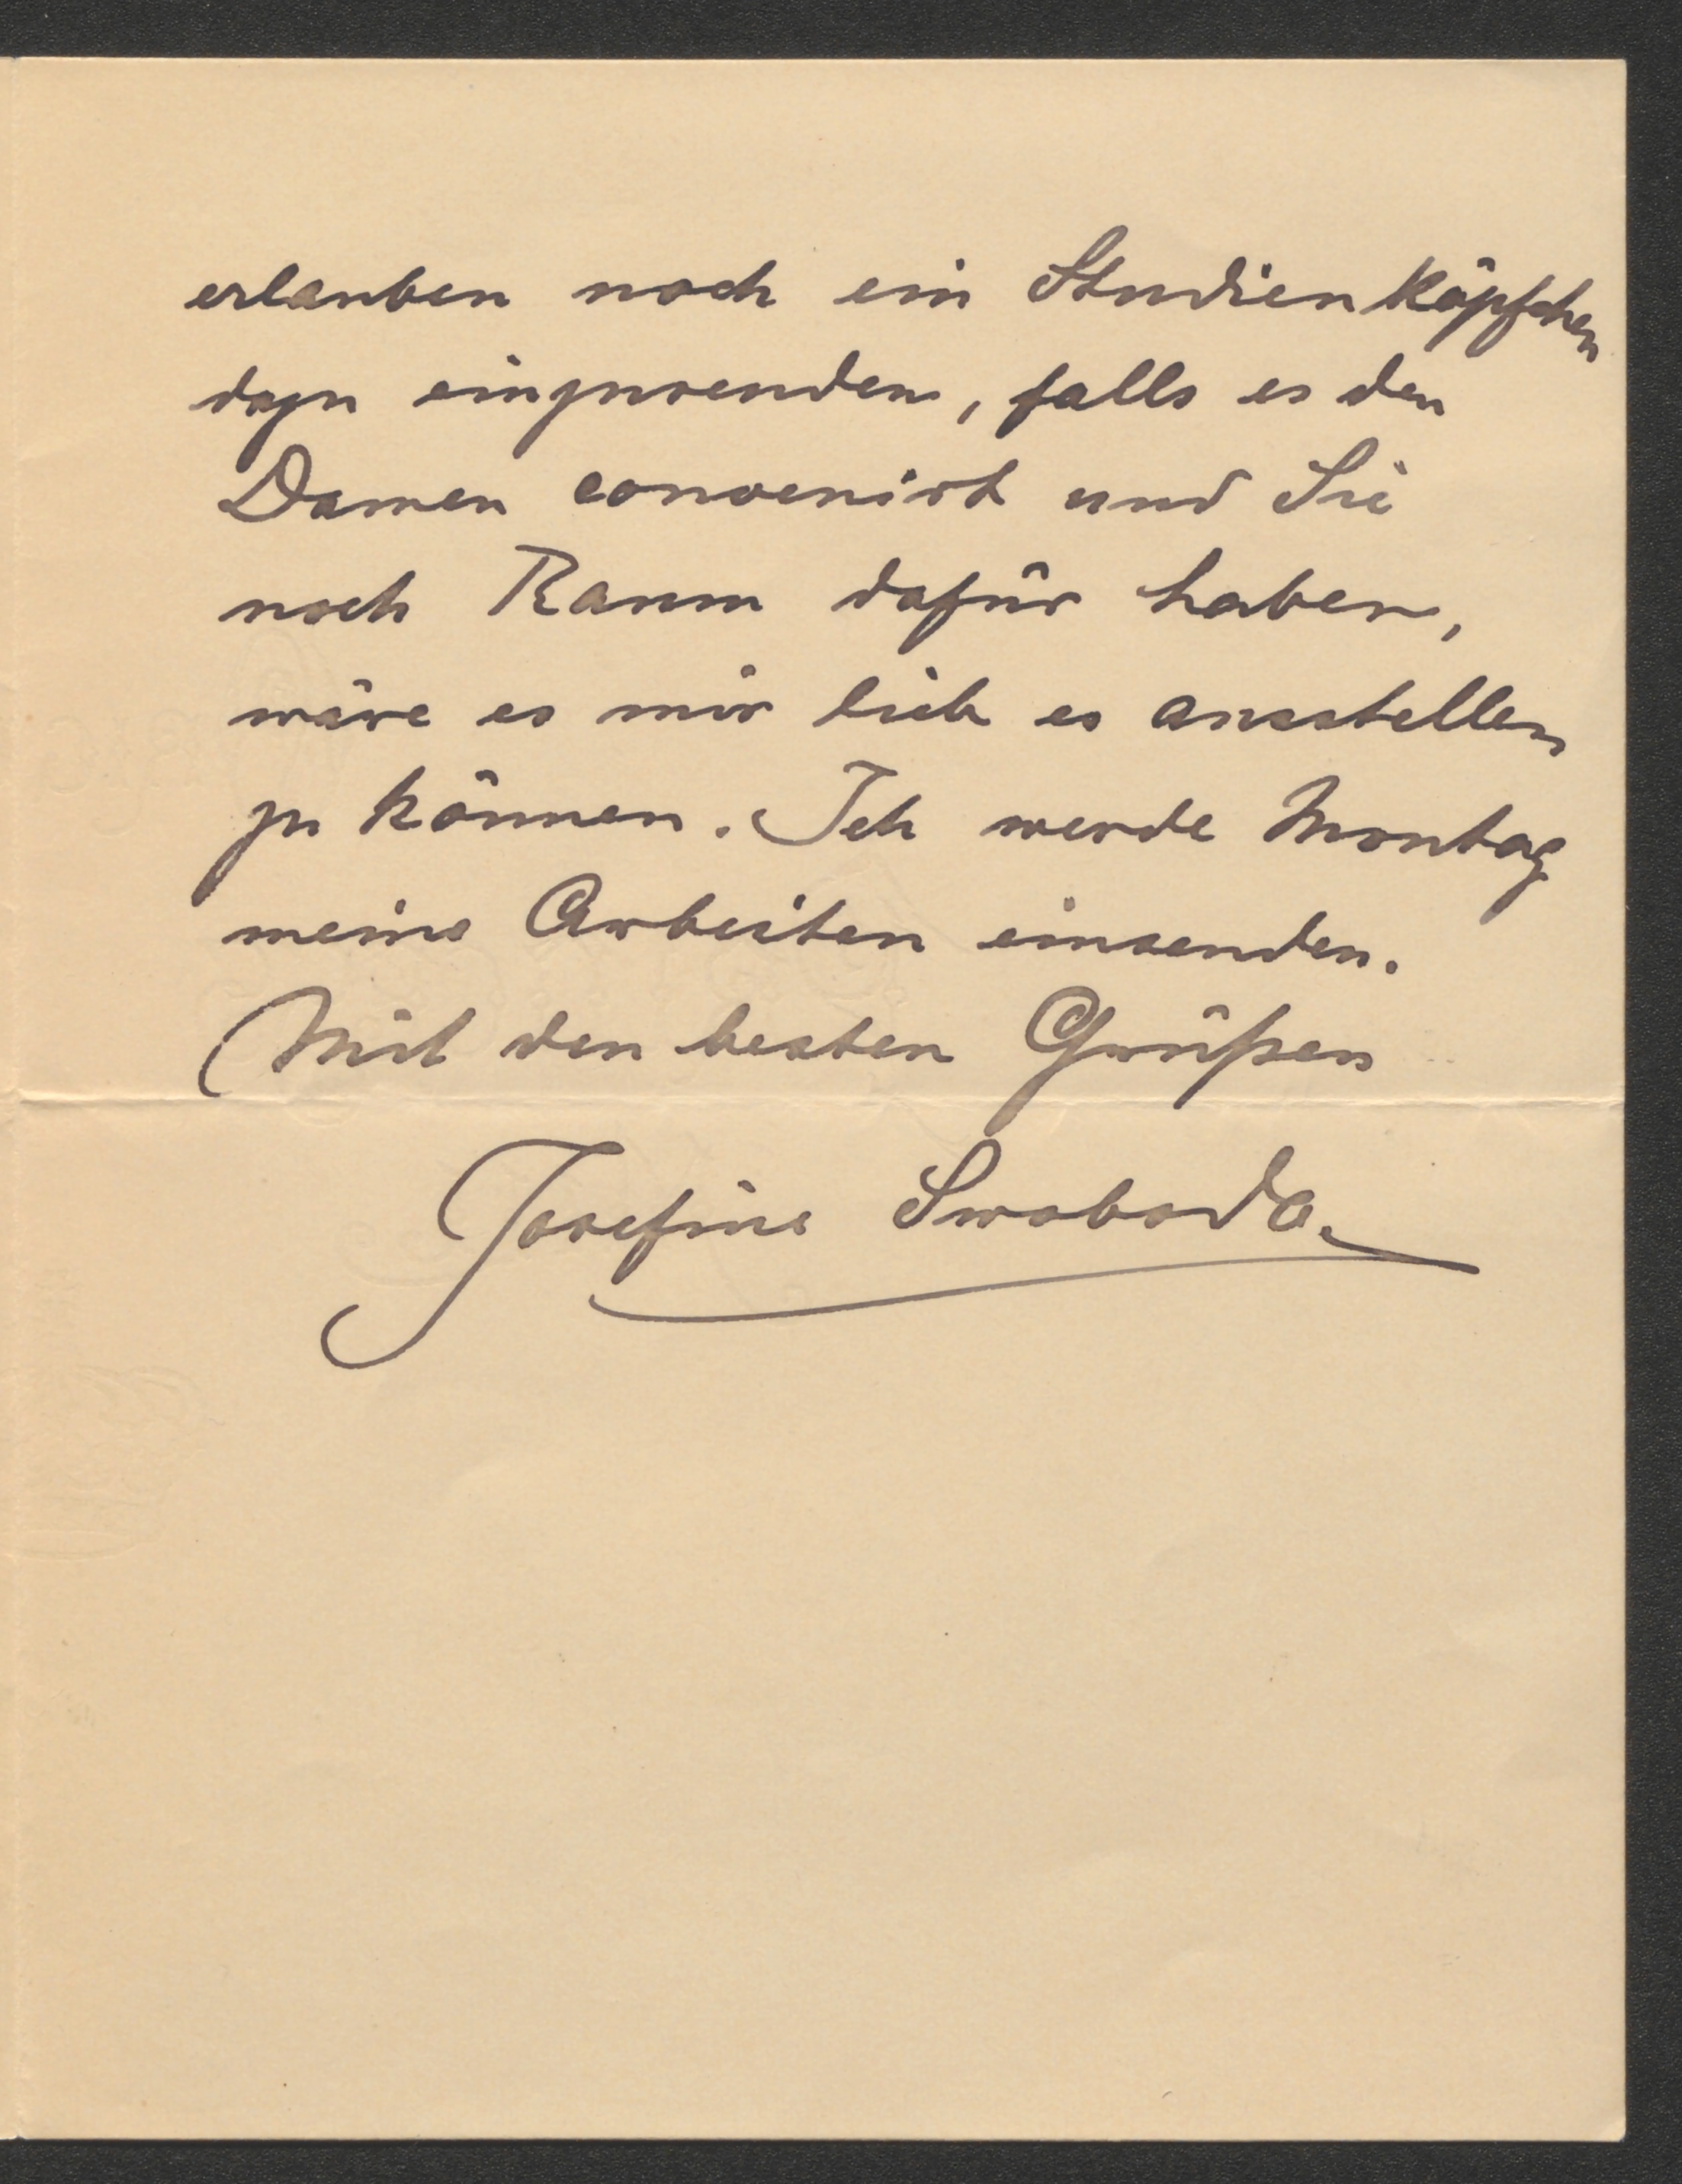 erlauben noch ein Studienköpfchen
dazu einzusenden, falls es den
Damen convenirt und Sie
noch Raum dafür haben,
wäre es mir lieb es ausstellen
zu können. Ich werde Montag
meine Arbeiten einsenden.
Mit den besten Grüßen
Josefine Swoboda.